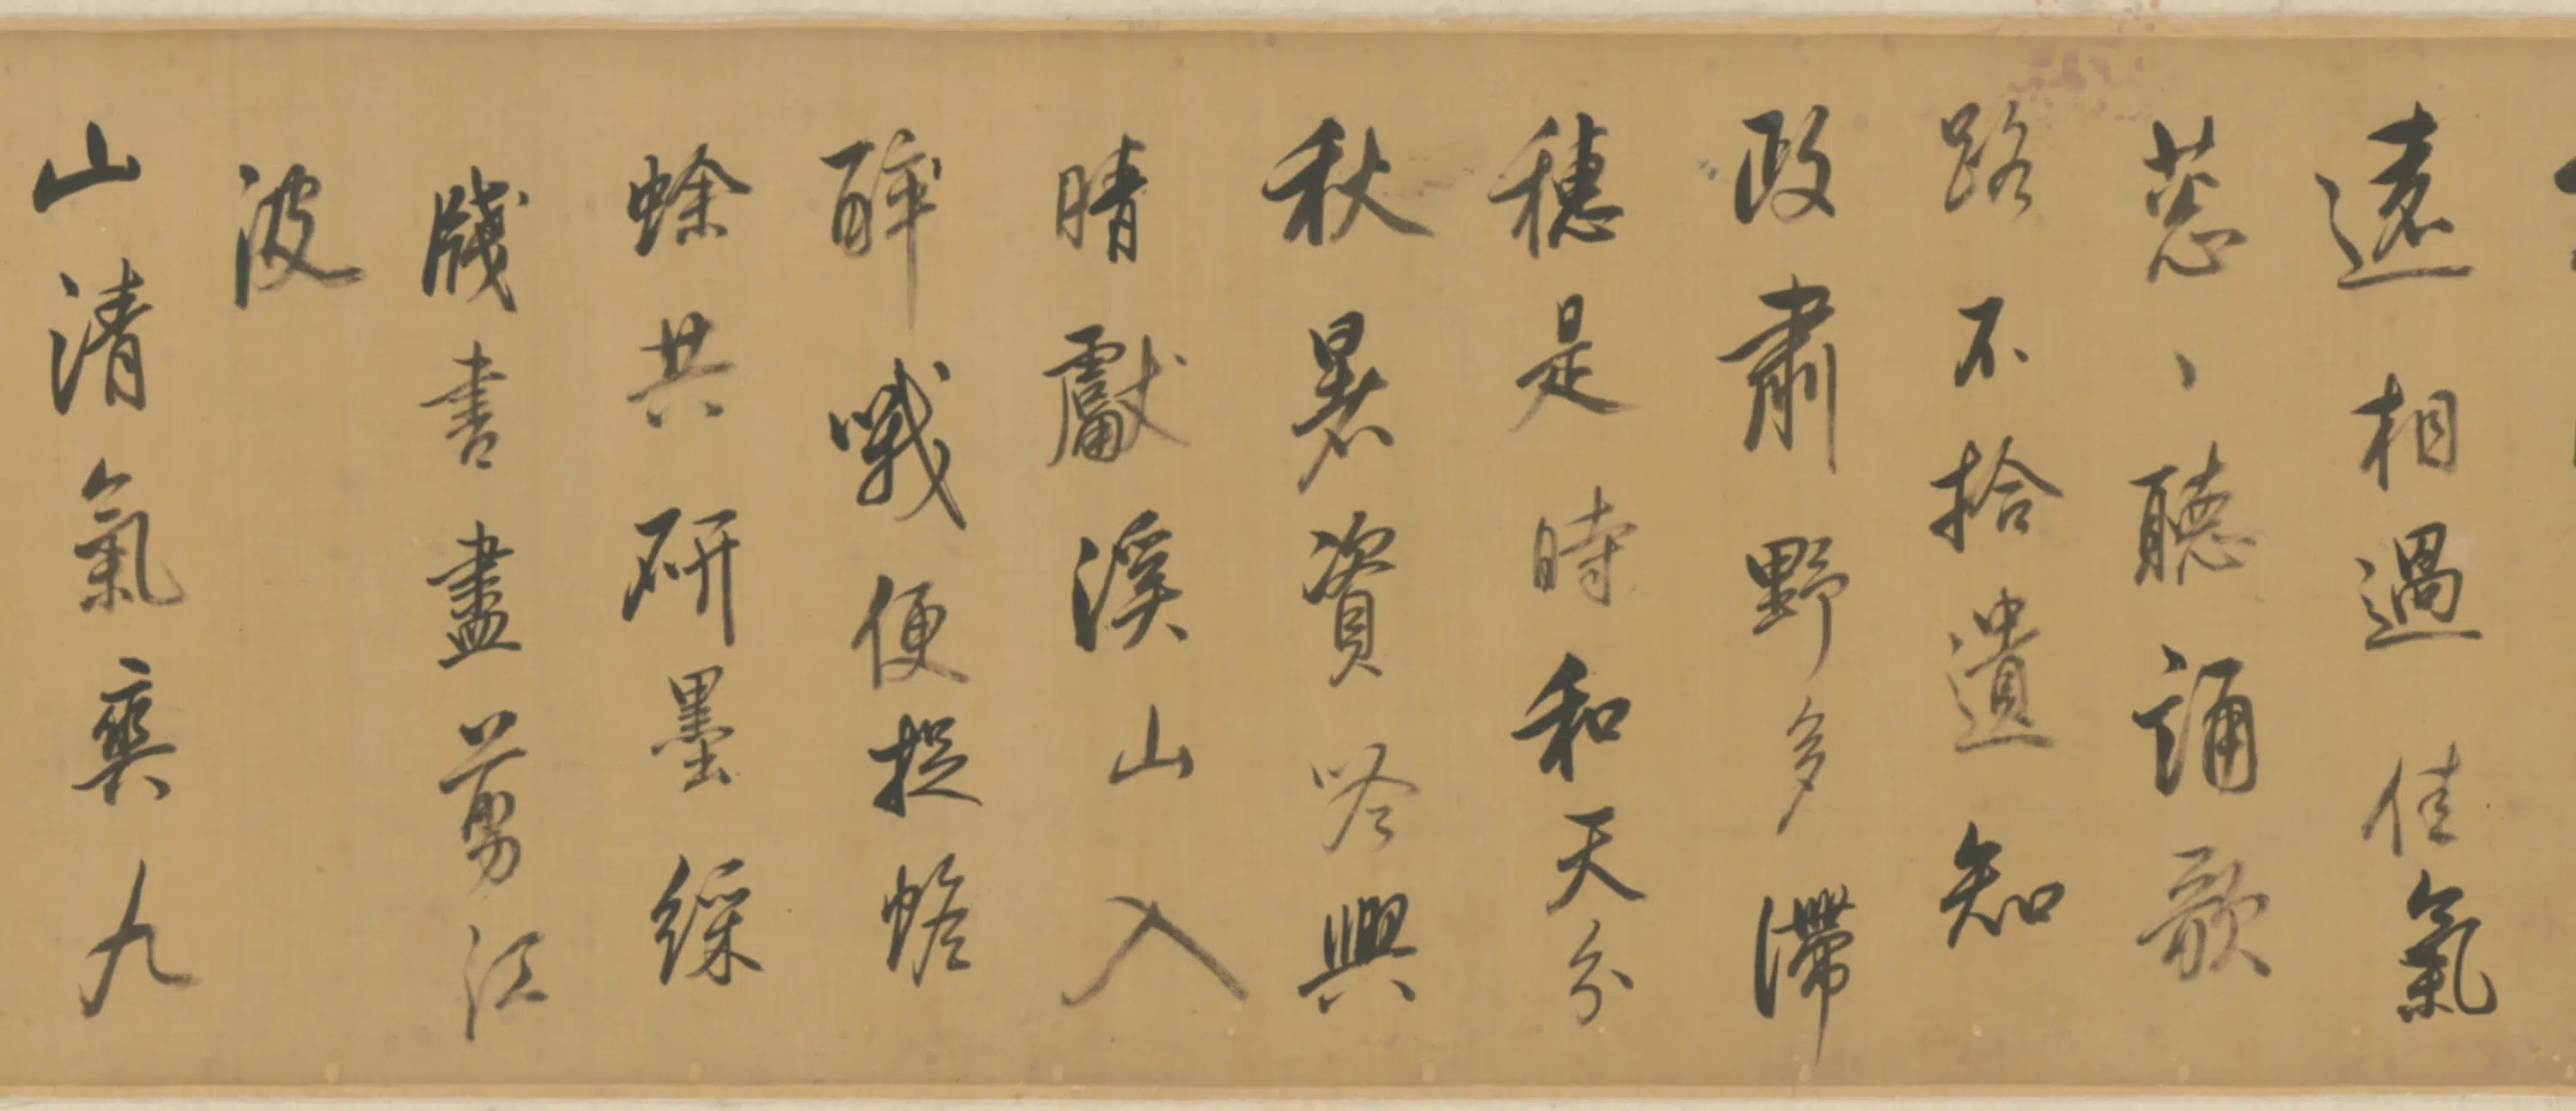 遠相過佳氣
蔥、聽誦歌
路不拾遺知
政肅野多滯
穗是時和天分
秋暑資吟興
晴獻溪山入
醉哦便捉蟾
蜍共研墨綵
牋書盡剪江
波
山清氣爽九